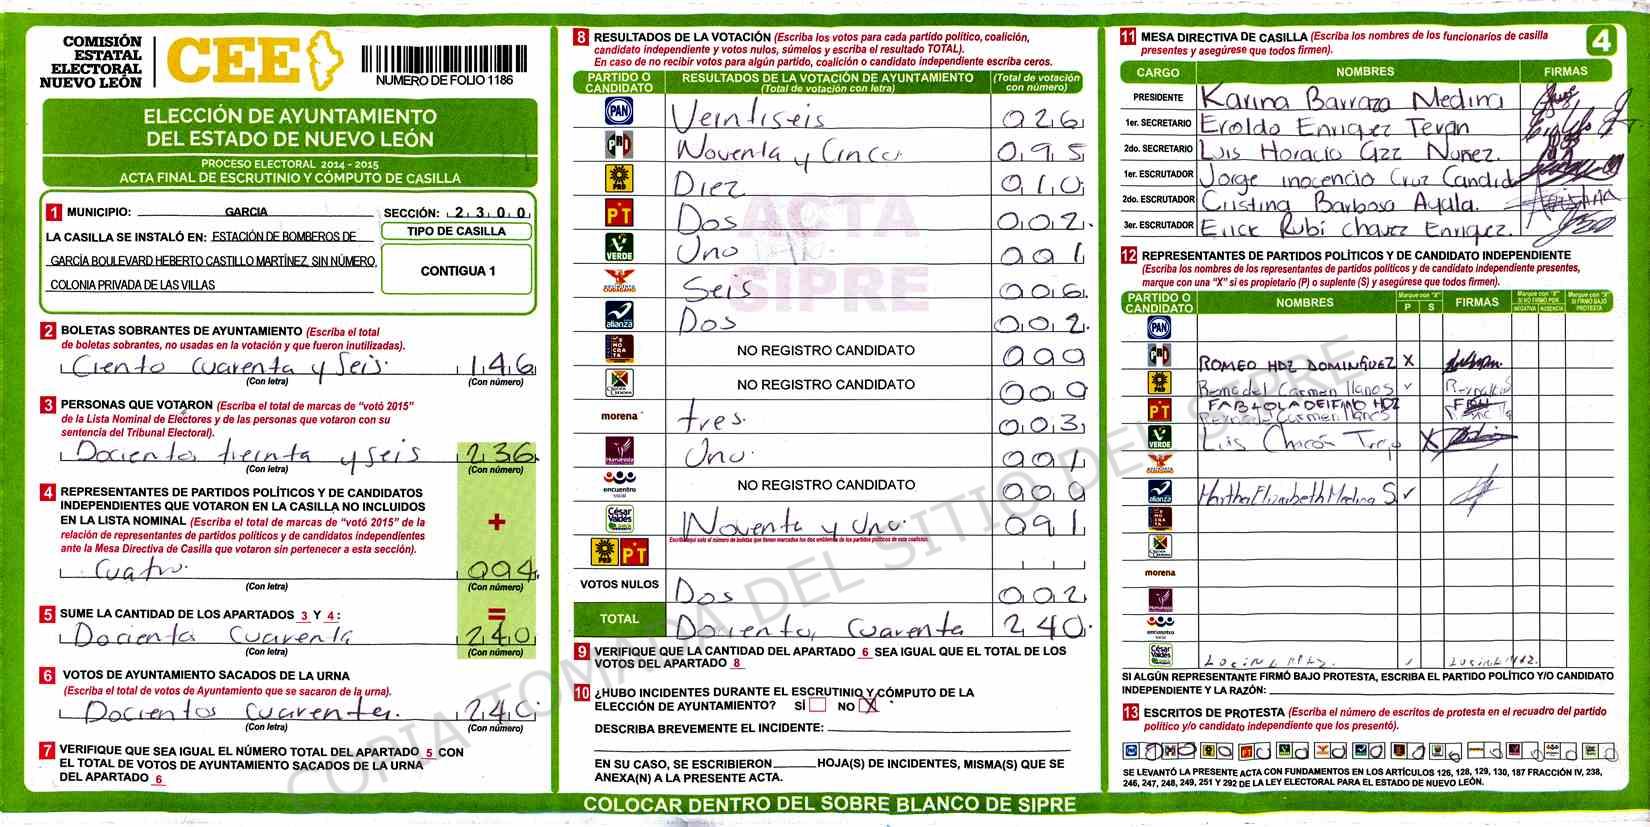 COMISIÓN
ESTATAL
ELECTORAL
NUEVO LEÓN
CEE
NUMERO DE FOLIO 1186
ELECCIÓN DE AYUNTAMIENTO
DEL ESTADO DE NUEVO LEÓN
PROCESO ELECTORAL 2014 - 2015
ACTA FINAL DE ESCRUTINIO Y CÓMPUTO DE CASILLA
1 MUNICIPIO: GARCIA SECCIÓN: 2 3 0 0
LA CASILLA SE INSTALÓ EN: ESTACIÓN DE BOMBEROS DE
GARCÍA BOULEVARD HEBERTO CASTILLO MARTÍNEZ, SIN NÚMERO,
COLONIA PRIVADA DE LAS VILLAS
TIPO DE CASILLA
CONTIGUA 1
2 BOLETAS SOBRANTES DE AYUNTAMIENTO (Escriba el total
de boletas sobrantes, no usadas en la votación y que fueron inutilizadas).
Ciento Cuarenta y Seis. 146
(Con letra) (Con número)
3 PERSONAS QUE VOTARON (Escriba el total de marcas de “votó 2015”
de la Lista Nominal de Electores y de las personas que votaron con su
sentencia del Tribunal Electoral).
Dociento treinta y seis 236
(Con letra) (Con número)
4 REPRESENTANTES DE PARTIDOS POLÍTICOS Y DE CANDIDATOS
INDEPENDIENTES QUE VOTARON EN LA CASILLA NO INCLUIDOS
EN LA LISTA NOMINAL (Escriba el total de marcas de “votó 2015” de la
relación de representantes de partidos políticos y de candidatos independientes
ante la Mesa Directiva de Casilla que votaron sin pertenecer a esta sección).
+
Cuatro. 004
(Con letra) (Con número)
=
5 SUME LA CANTIDAD DE LOS APARTADOS 3 Y 4 :
Docientos Cuarenta 240
(Con letra) (Con número)
6 VOTOS DE AYUNTAMIENTO SACADOS DE LA URNA
(Escriba el total de votos de Ayuntamiento que se sacaron de la urna).
Docientos cuarenta. 240
(Con letra) (Con número)
7 VERIFIQUE QUE SEA IGUAL EL NÚMERO TOTAL DEL APARTADO 5 CON
EL TOTAL DE VOTOS DE AYUNTAMIENTO SACADOS DE LA URNA
DEL APARTADO 6
8 RESULTADOS DE LA VOTACIÓN (Escriba los votos para cada partido político, coalición,
candidato independiente y votos nulos, súmelos y escriba el resultado TOTAL).
En caso de no recibir votos para algún partido, coalición o candidato independiente escriba ceros.
PARTIDO O CANDIDATO
RESULTADOS DE LA VOTACIÓN DE AYUNTAMIENTO
(Total de votación con letra)
(Total de votación con número)
PAN Veintiseis 026
PRI Noventa y Cinco. 095
PRD Diez 010
PT Dos 002.
VERDE Uno 001
Seis 006
alianza Dos 002
NO REGISTRO CANDIDATO 000
NO REGISTRO CANDIDATO 000
morena tres. 003
Humanista Uno. 001
encuentro social NO REGISTRO CANDIDATO 000
César Valdés Noventa y Uno. 091
PRD PT
VOTOS NULOS Dos 002
TOTAL Docientos Cuarenta 240.
ACTA
SIPRE
9 VERIFIQUE QUE LA CANTIDAD DEL APARTADO 6 SEA IGUAL QUE EL TOTAL DE LOS
VOTOS DEL APARTADO 8
10 ¿HUBO INCIDENTES DURANTE EL ESCRUTINIO Y CÓMPUTO DE LA
ELECCIÓN DE AYUNTAMIENTO? SÍ NO X
DESCRIBA BREVEMENTE EL INCIDENTE:
EN SU CASO, SE ESCRIBIERON HOJA(S) DE INCIDENTES, MISMA(S) QUE SE
ANEXA(N) A LA PRESENTE ACTA.
COLOCAR DENTRO DEL SOBRE BLANCO DE SIPRE
11 MESA DIRECTIVA DE CASILLA (Escriba los nombres de los funcionarios de casilla
presentes y asegúrese que todos firmen).
4
CARGO NOMBRES FIRMAS
PRESIDENTE Karina Barraza Medina
1er. SECRETARIO Eroldo Enriquez Teran
2do. SECRETARIO Luis Horacio Gzz Nuñez.
1er. ESCRUTADOR Jorge inocencio Cruz Candid
2do. ESCRUTADOR Cristina Barbosa Ayala. Cristina
3er. ESCRUTADOR Erick Rubi Chavez Enriqez.
12 REPRESENTANTES DE PARTIDOS POLÍTICOS Y DE CANDIDATO INDEPENDIENTE
(Escriba los nombres de los representantes de partidos políticos y de candidato independiente presentes,
marque con una “X” si es propietario (P) o suplente (S) y asegúrese que todos firmen).
PARTIDO O CANDIDATO NOMBRES Marque con “X” P S FIRMAS
Marque con “X” SI NO FIRMÓ POR NEGATIVA AUSENCIA
Marque con “X” SI FIRMÓ BAJO PROTESTA
PAN
PRI ROMEO HDZ DOMINGUEZ X
PRD del Carmen llanos
PT FABIOLA DELFINO HDZ
VERDE Luis Chacón Trejo X
alianza Martha Elizabeth Medina S
morena
Humanista
encuentro social
César Valdés
SI ALGÚN REPRESENTANTE FIRMÓ BAJO PROTESTA, ESCRIBA EL PARTIDO POLÍTICO Y/O CANDIDATO
INDEPENDIENTE Y LA RAZÓN:
13 ESCRITOS DE PROTESTA (Escriba el número de escritos de protesta en el recuadro del partido
político y/o candidato independiente que los presentó).
SE LEVANTÓ LA PRESENTE ACTA CON FUNDAMENTOS EN LOS ARTÍCULOS 126, 128, 129, 130, 187 FRACCIÓN IV, 238,
246, 247, 248, 249, 251 Y 292 DE LA LEY ELECTORAL PARA EL ESTADO DE NUEVO LEÓN.
COPIA TOMADA DEL SITIO DEL SIPRE